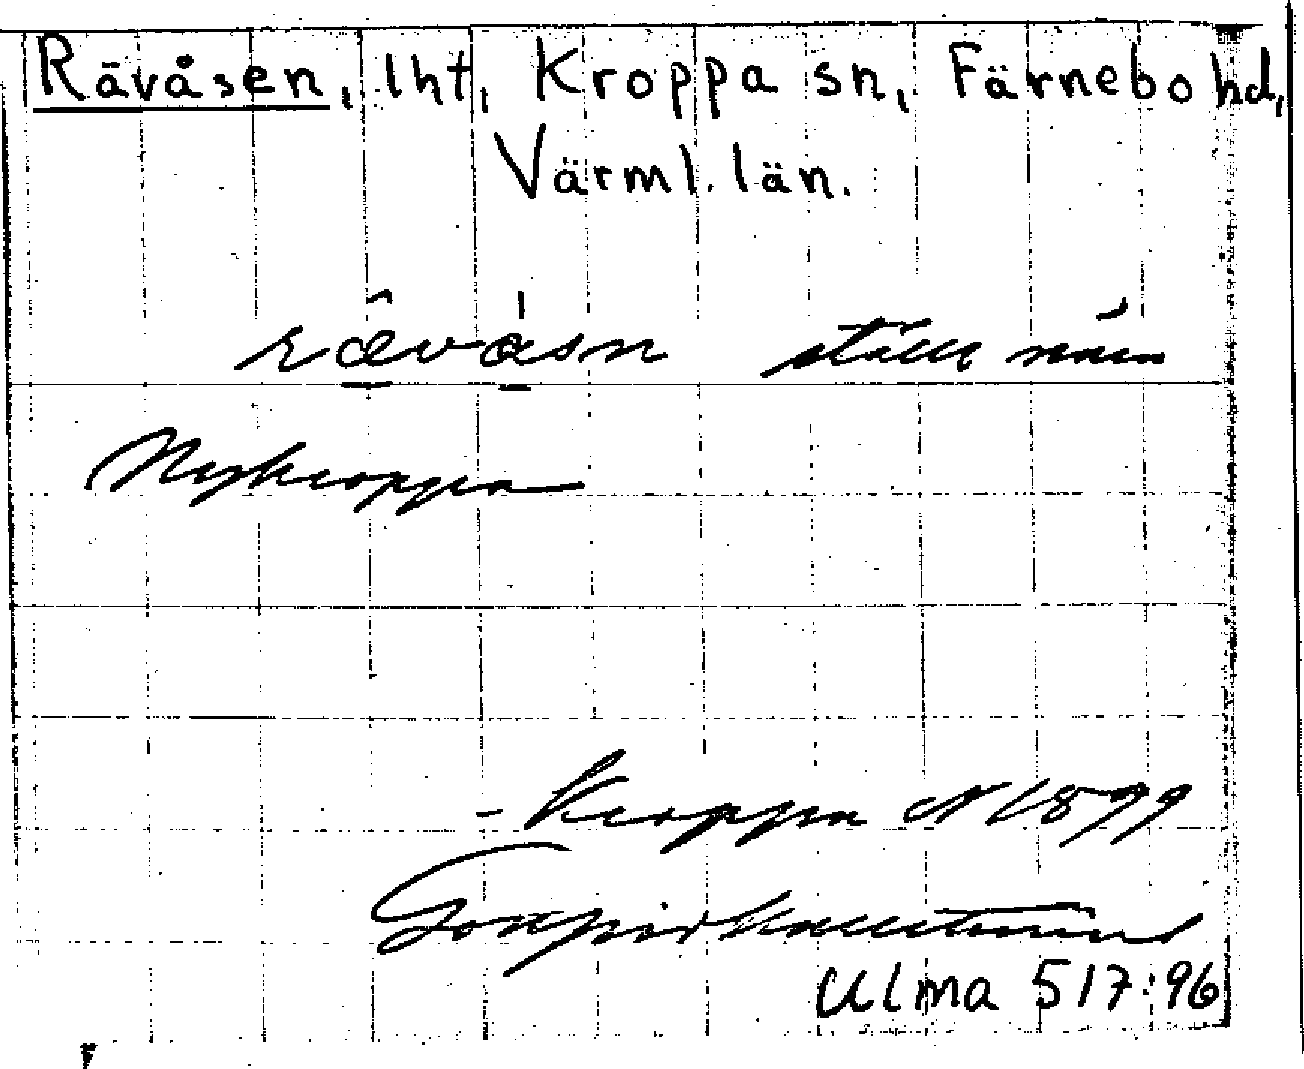 Rävåsen, lht, Kroppa sn, Färnebo hd,
Värml. län.
rævåsn ställe nära
Nykroppa
- Kroppa N 1899
Ulma 517:96